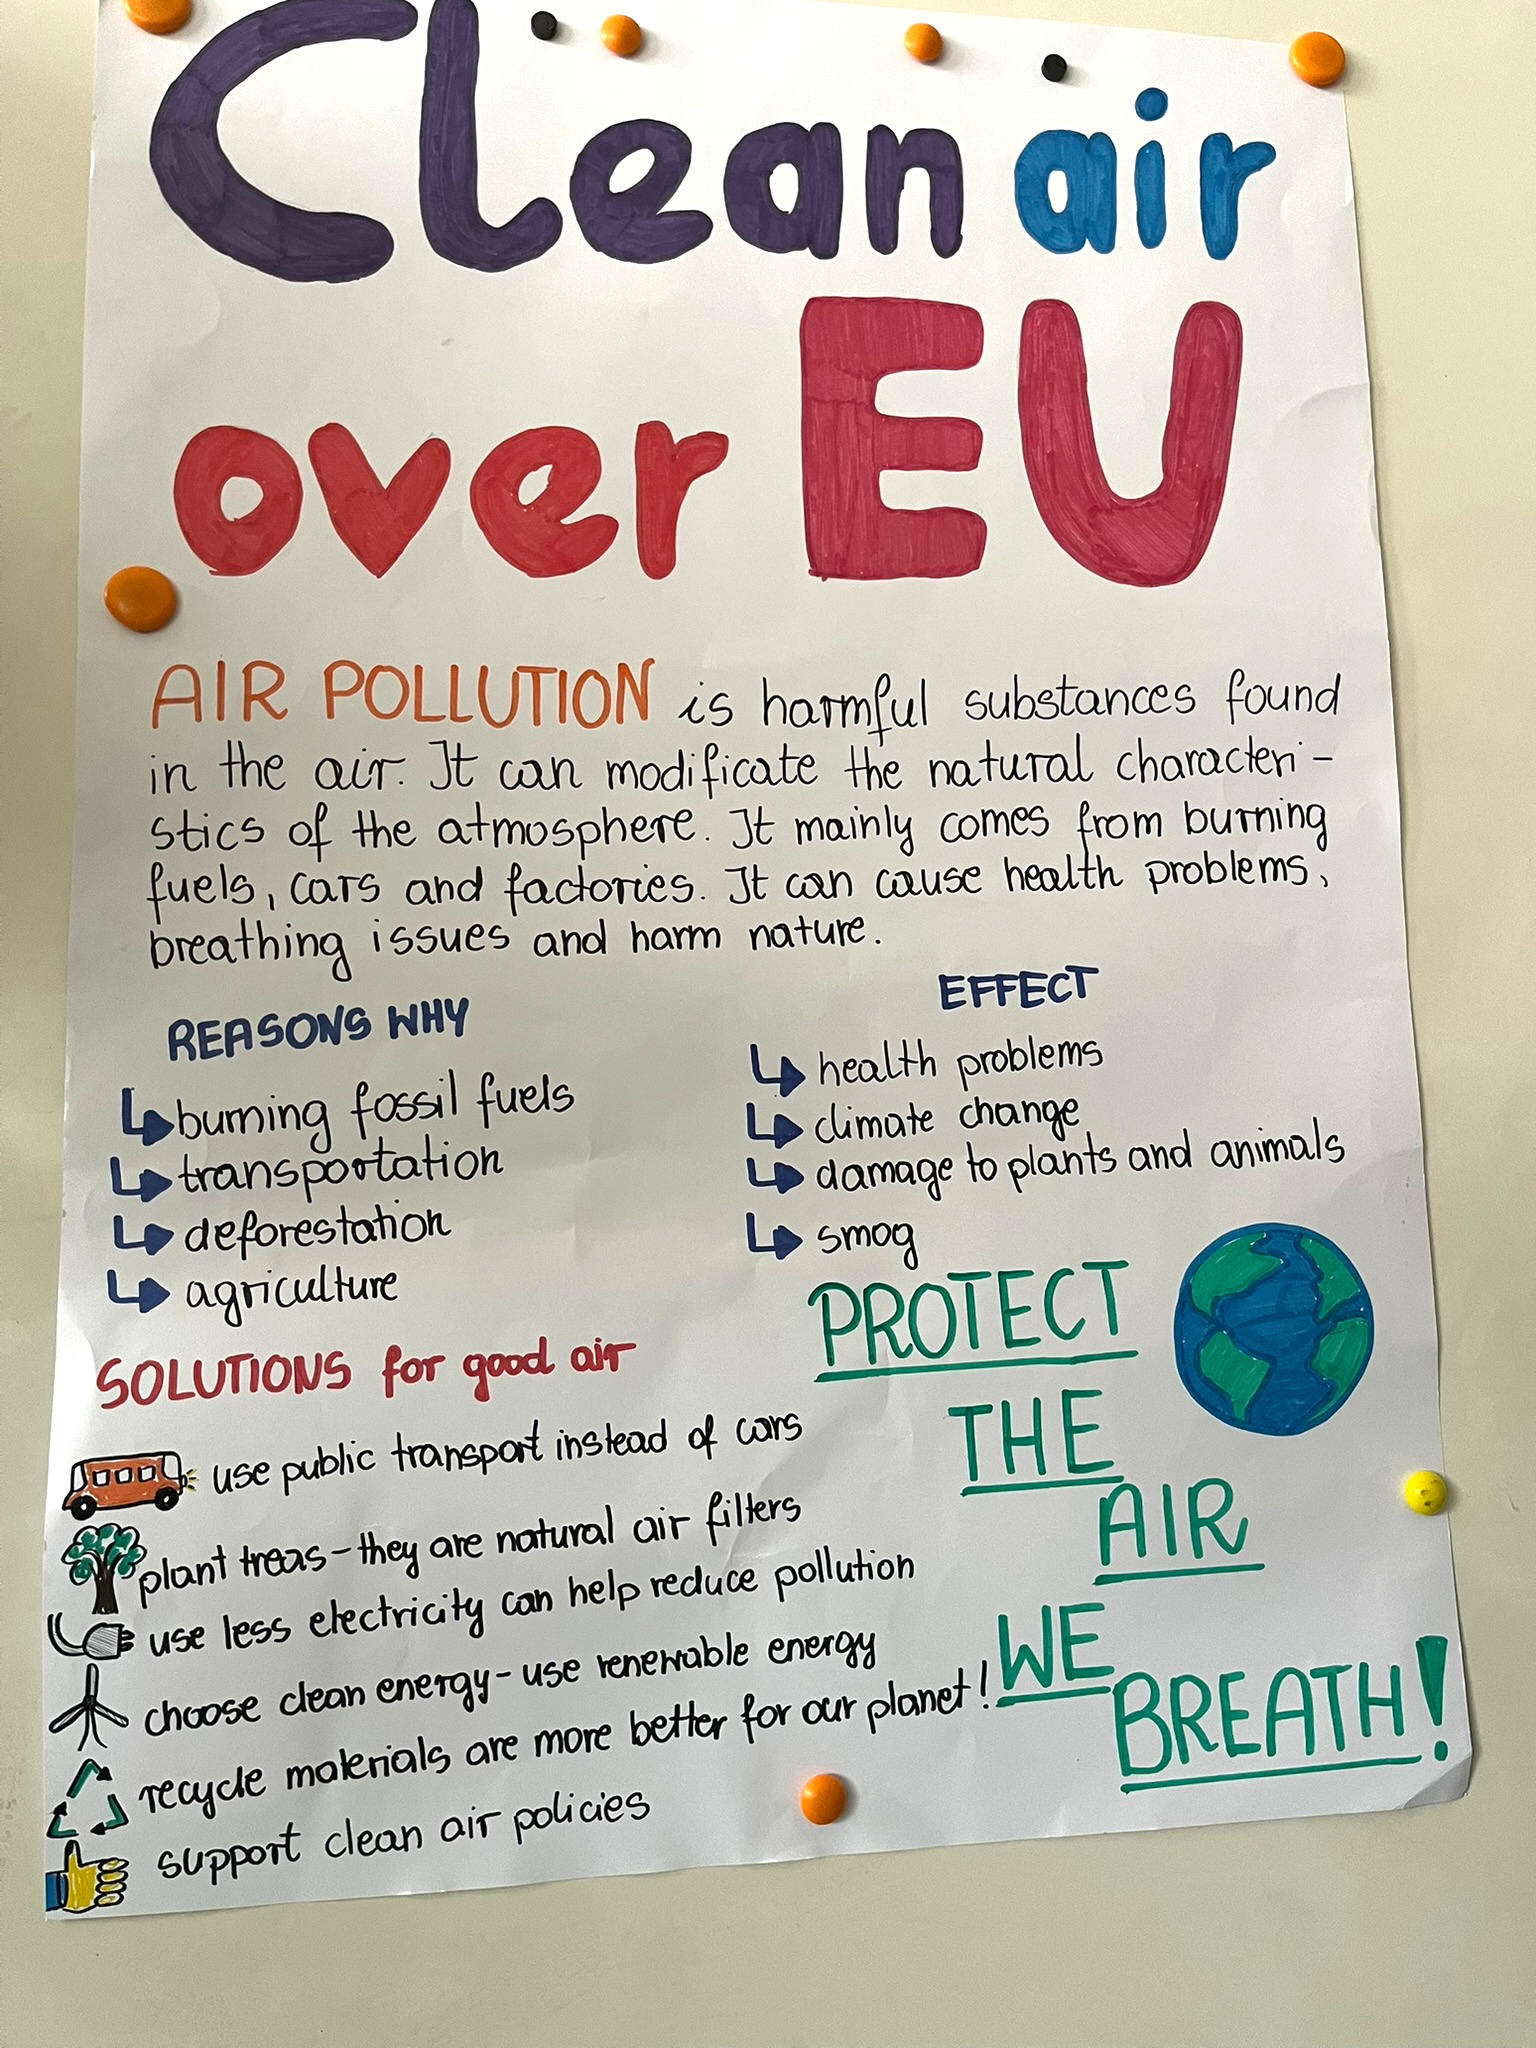 Clean air
over EU
AIR POLLUTION is harmful substances found
in the air. It can modificate the natural characteri-
stics of the atmosphere. It mainly comes from burning
fuels, cars and factories. It can cause health problems,
breathing issues and harm nature.
REASONS WHY
burning fossil fuels
transportation
deforestation
agriculture
EFFECT
health problems
climate change
damage to plants and animals
smog
SOLUTIONS for good air
use public transport instead of cars
plant treas - they are natural air filters
use less electricity can help reduce pollution
choose clean energy - use renewable energy
recycle materials are more better for our planet!
support clean air policies
PROTECT
THE
AIR
WE
BREATH!